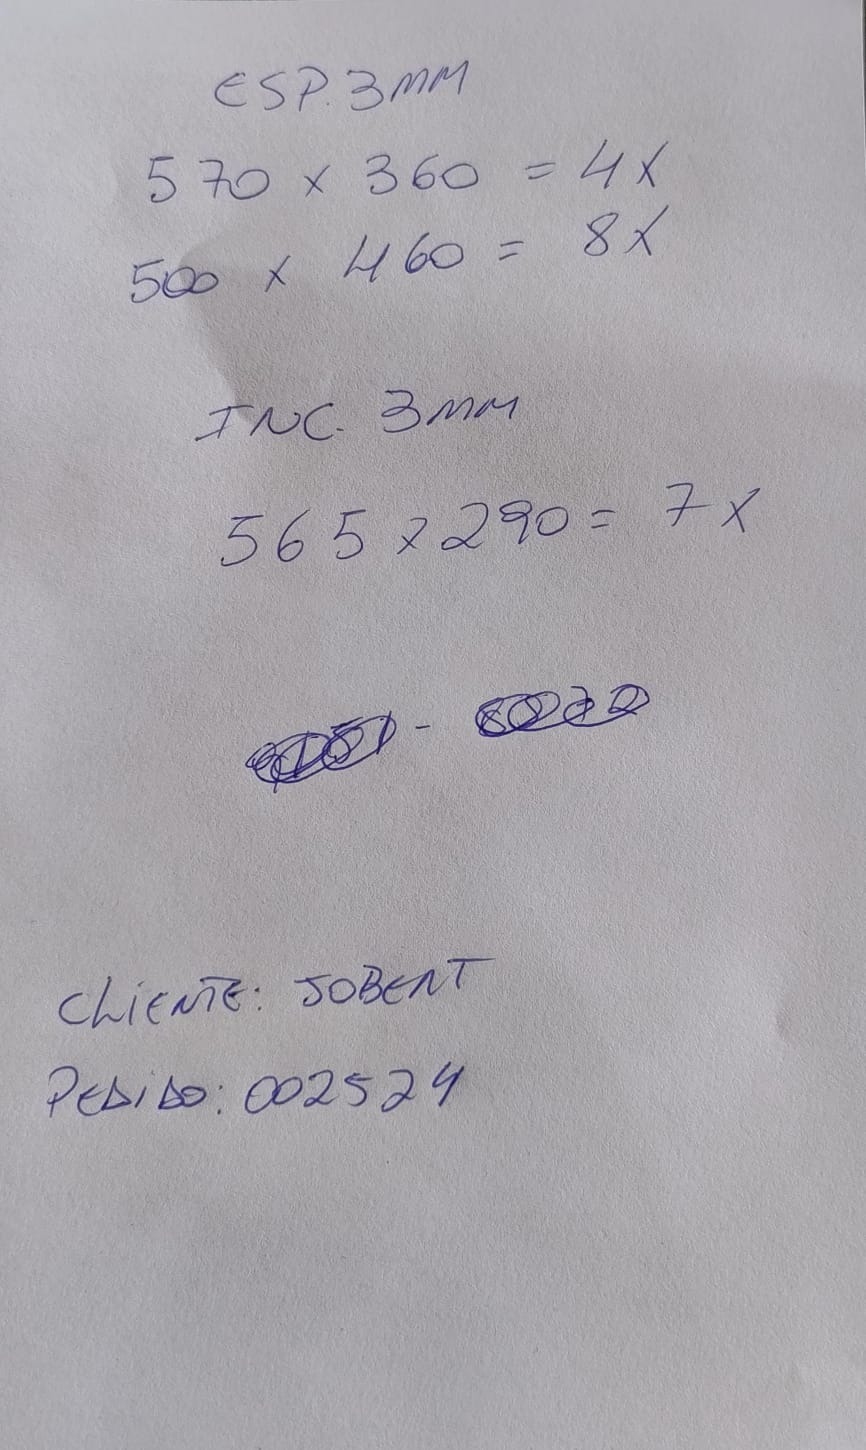 ESP. 3MM
570 x 360 = 4X
500 x 460 = 8X
INC. 3MM
565 x 290 = 7X
CLiENTE: JOBENT
PEDiDO: 002524